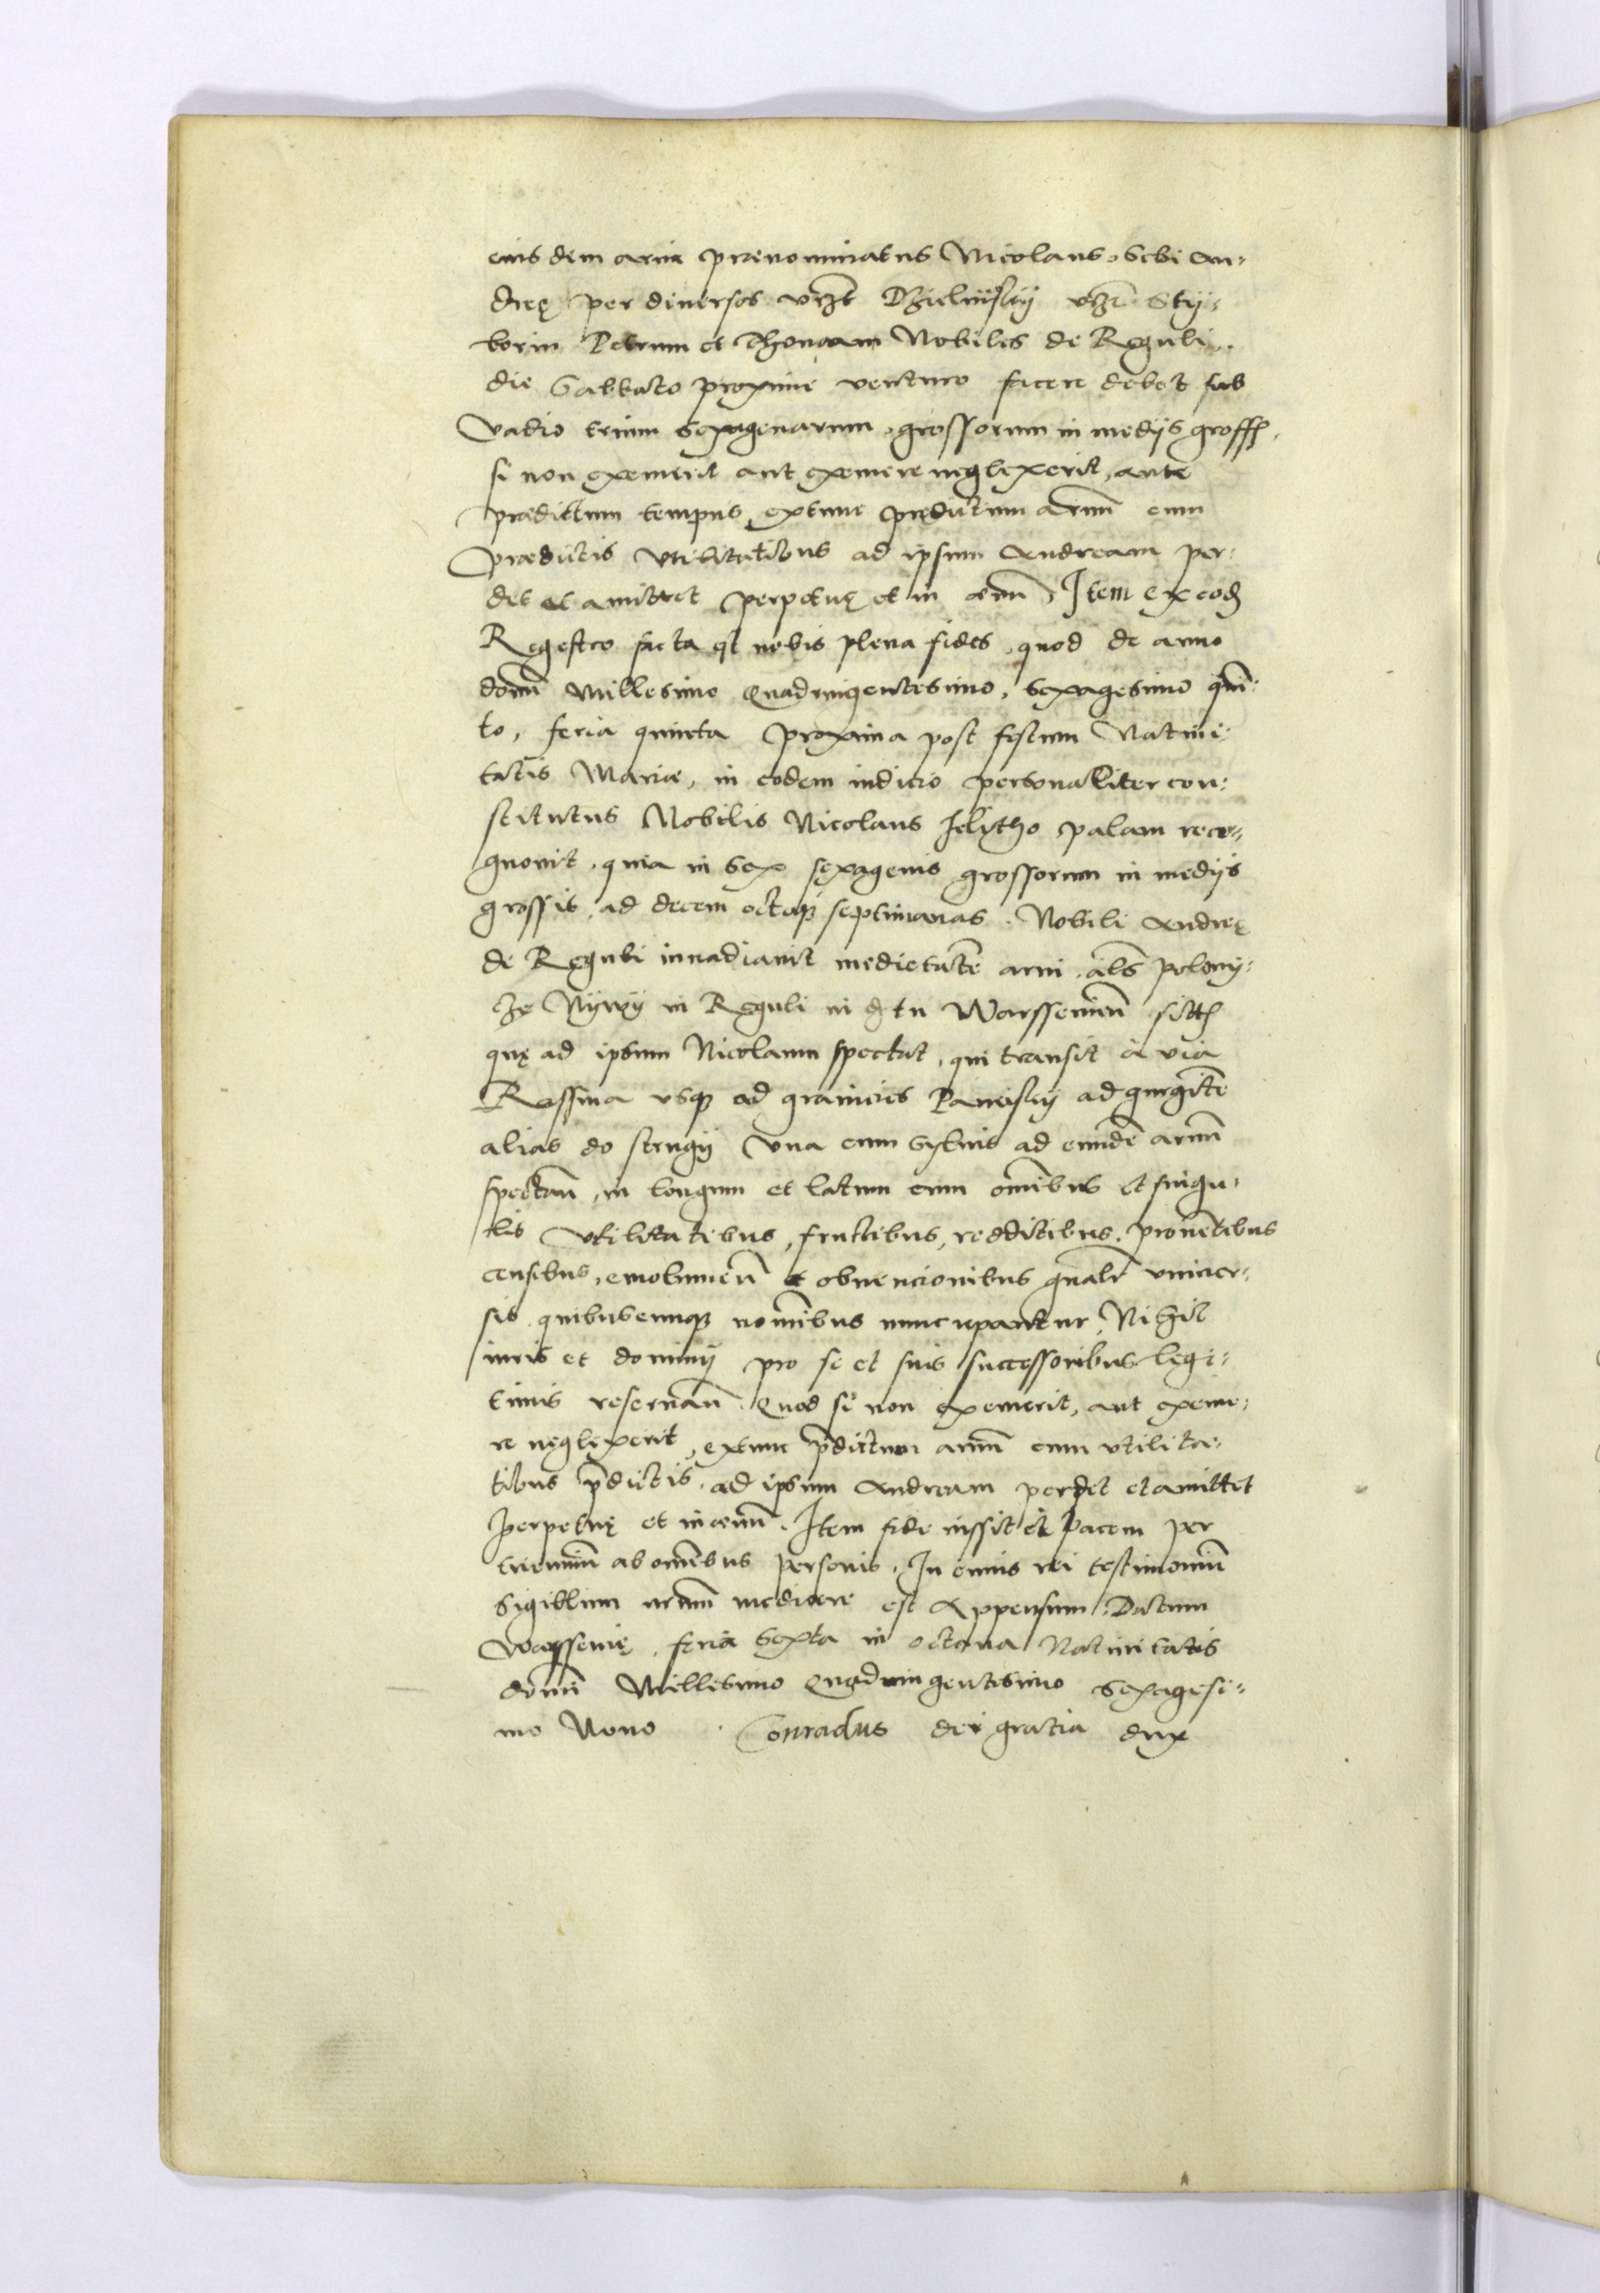 eiusdem arui prænominatus Nicolaus, sibi An-
dreę per diuersos Dzielnijskij Stij-
borin Petrum et Thomam Nobiles de Reguli.
die Sabbato proxime venturo facere debet sub
vadio trium sexagenarum grossorum in medijs gross
si non exemerit aut exemere neglexerit, ante
prædictum tempus, extunc prędictum aruū cum
prædictis vtilitatibus ad ipsum Andream per-
det et amittet perpetuę et in æuū Item ex eod
Regestro facta est nobis plena fides, quod de anno
domī Millesimo Quadringentesimo, sexagesimo quin-
to, feria quinta proxima post festum Natiui-
tatis Mariæ, in eodem iudicio personaliter con-
stitutus Nobilis Nicolaus Jelitho palam reco-
gnouit, quia in sex sexagenis grossorum in medijs
grossis, ad decem octoq septimanas, Nobili Andreę
de Reguli inuadiauit medietatē arui, als̄ polony-
cę Nijwij in Reguli in d̄tu Warsseuień sitt
quę ad ipsum Nicolaum spectat, qui transit à via
Rassina vsq ad granicies Pancislij ad gurgitē
alias do strugij vna cum syluis ad eundē aruū
spectań, in longum et latum cum omībus et singu-
lis vtilitatibus, fructibus, redditibus, prouētibus
censibus, emolumeń et obuencionibus qualr̄ vniuer-
sis quibuscunq nomībus nuncupantur, Nihil
iuris et dominij pro se et suis successoribus legi-
timis reseruań Quod si non exemerit, aut exeme-
re neglexerit, extunc p̄dictum aruū cum vtilita-
tibus p̄dictis, ad ipsum Andream perdet et amittet
perpetuę et in æuū. Item fide iussit et pacem per
trienniū ab omībus personis. In cuius rei testimoniū
Sigillum nrūm mediocre est Appensum. Datum
Warsseuię, feria sexta in octaua Natiuitatis
domī Millesimo Quadringentesimo sexagesi-
mo Nono. Conradus dei gratia dux